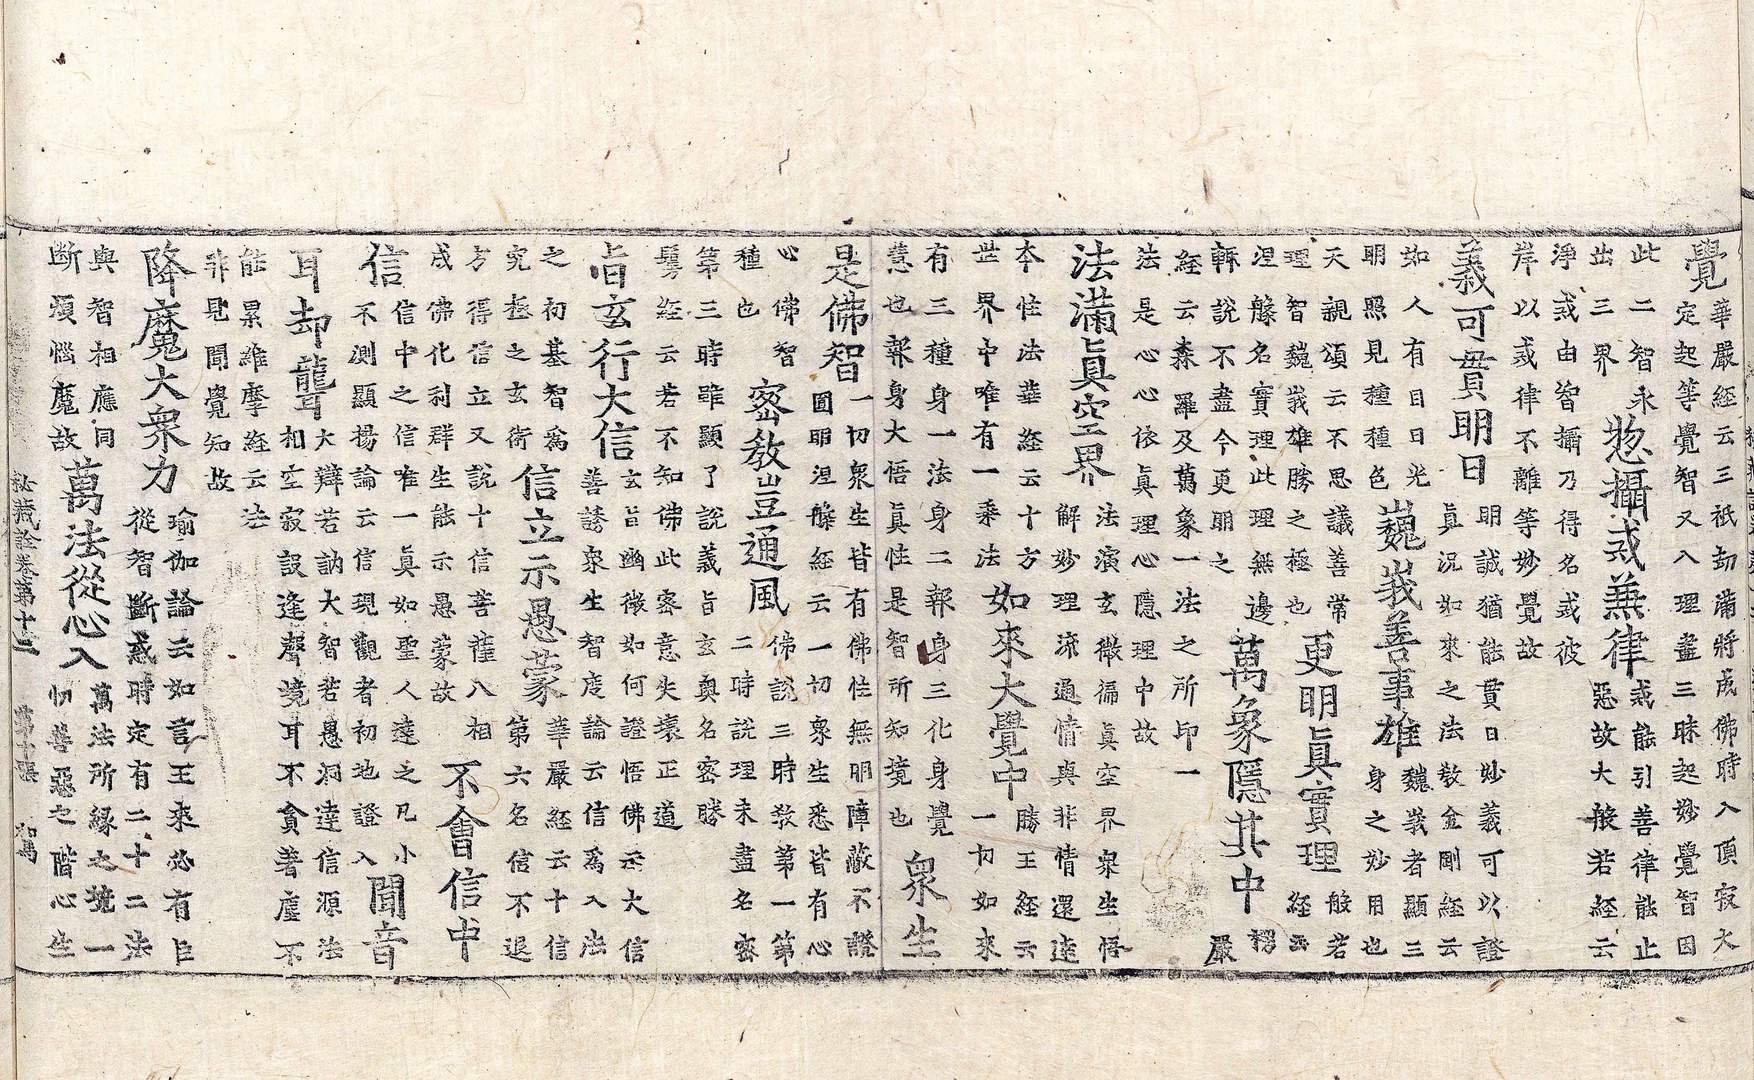 覺
華嚴經云三祇劫滿將成佛時入頂寂大
定起等覺智又入理盡三昧起妙覺智因
此二智永
出三界
惣攝戒兼律
戒能引善律能止
惡故大般若經云
淨戒由智攝乃得名戒彼
岸以戒律不離等妙覺故
義可貫明日
明誠猶能貫日妙義可以證
眞況如來之法敎金剛經云
如人有日日光
明照見種種色
巍峩善事雄
巍峩者顯三
身之妙用也
天親頌云不思議善常
理智巍峩雄勝之極也
更明眞實理
般若
經云
涅槃名實理此理無邊
說不盡今更明之
萬象隱其中
楞
嚴
經云森羅及萬象一法之所印一
法是心心依眞理心隱理中故
法滿眞空界
法演玄微徧眞空界衆生悟
解妙理流通情與非情還達
本性法華經云十方
世界中唯有一乘法
如來大覺中
勝王經云
一切如來
有三種身一法身二報身三化身覺
慧也報身大悟眞性是智所知境也
衆生
是佛智
一切衆生皆有佛性無明障蔽不證
圓明涅槃經云一切衆生悉皆有心
心佛智
種也
密敎豈通風
佛說三時敎第一第
二時說理未盡名密
第三時雖顯了說義旨玄奧名密勝
鬘經云若不知佛此密意失壞正道
旨玄行大信
玄旨幽微如何證悟佛示大信
善誘衆生智度論云信爲入法
之初基智爲
究極之玄術
信立示愚蒙
華嚴經云十信
第六名信不退
方得信立又說十信菩薩八相
成佛化利群生能示愚蒙故
不會信中
信
信中之信唯一眞如聖人達之凡小
不測顯揚論云信現觀者初地證入
聞音
耳却聾
大辯若訥大智若愚洞達信源法
相空寂設逢聲境耳不貪著虛不
能累維摩經云法
非見聞覺知故
降魔大衆力
瑜伽論云如言王來必有臣
從智斷惑時定有二十二法
與智相應同
斷煩惱魔故
萬法從心入
萬法所緣之境一
切善惡之階心生
秘藏詮卷第十三 第十張